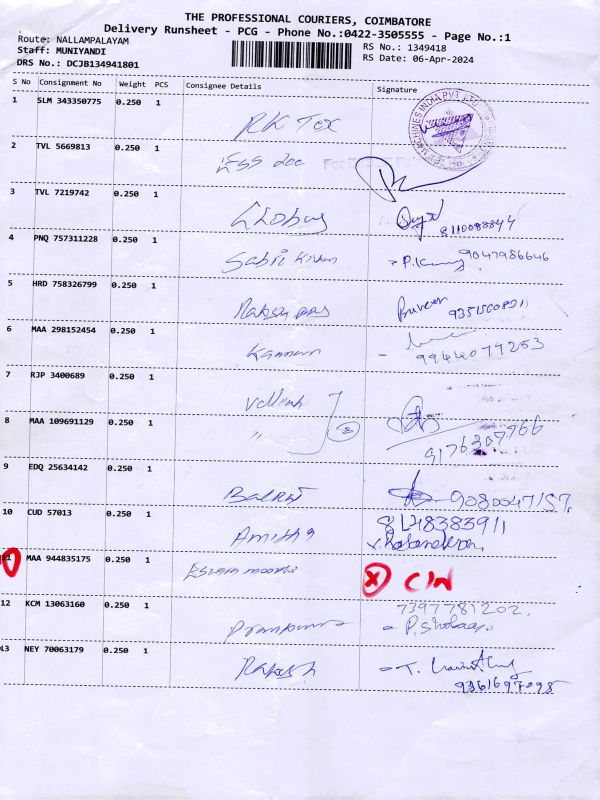 THE PROFESSIONAL COURIERS, COIMBATORE
Delivery Runsheet - PCG - Phone No.:0422-3505555 - Page No.:1
Route: NALLAMPALAYAM
RS No.: 1349418
Staff: MUNIYANDI
RS Date: 06-Apr-2024
DRS No.: DCJB134941801
S No Consignment No Weight PCS Consignee Details Signature
1 SLM 343350775 0.250 1 RK Tex
2 TVL 5669813 0.250 1
3 TVL 7219742 0.250 1 Globus
8110088844
4 PNQ 757311228 0.250 1 Sabri
9047986646
5 HRD 758326799 0.250 1
6 MAA 298152454 0.250 1 Kannan
9944079253
7 RJP 3400689 0.250 1
8 MAA 109691129 0.250 1 " 2
9176307966
9 EDQ 25634142 0.250 1 Balraj
10 CUD 57013 0.250 1 Amitha
11 MAA 944835175 0.250 1 X C/N
12 KCM 13063160 0.250 1
7397781202.
13 NEY 70063179 0.250 1 Rakesh
9361697098